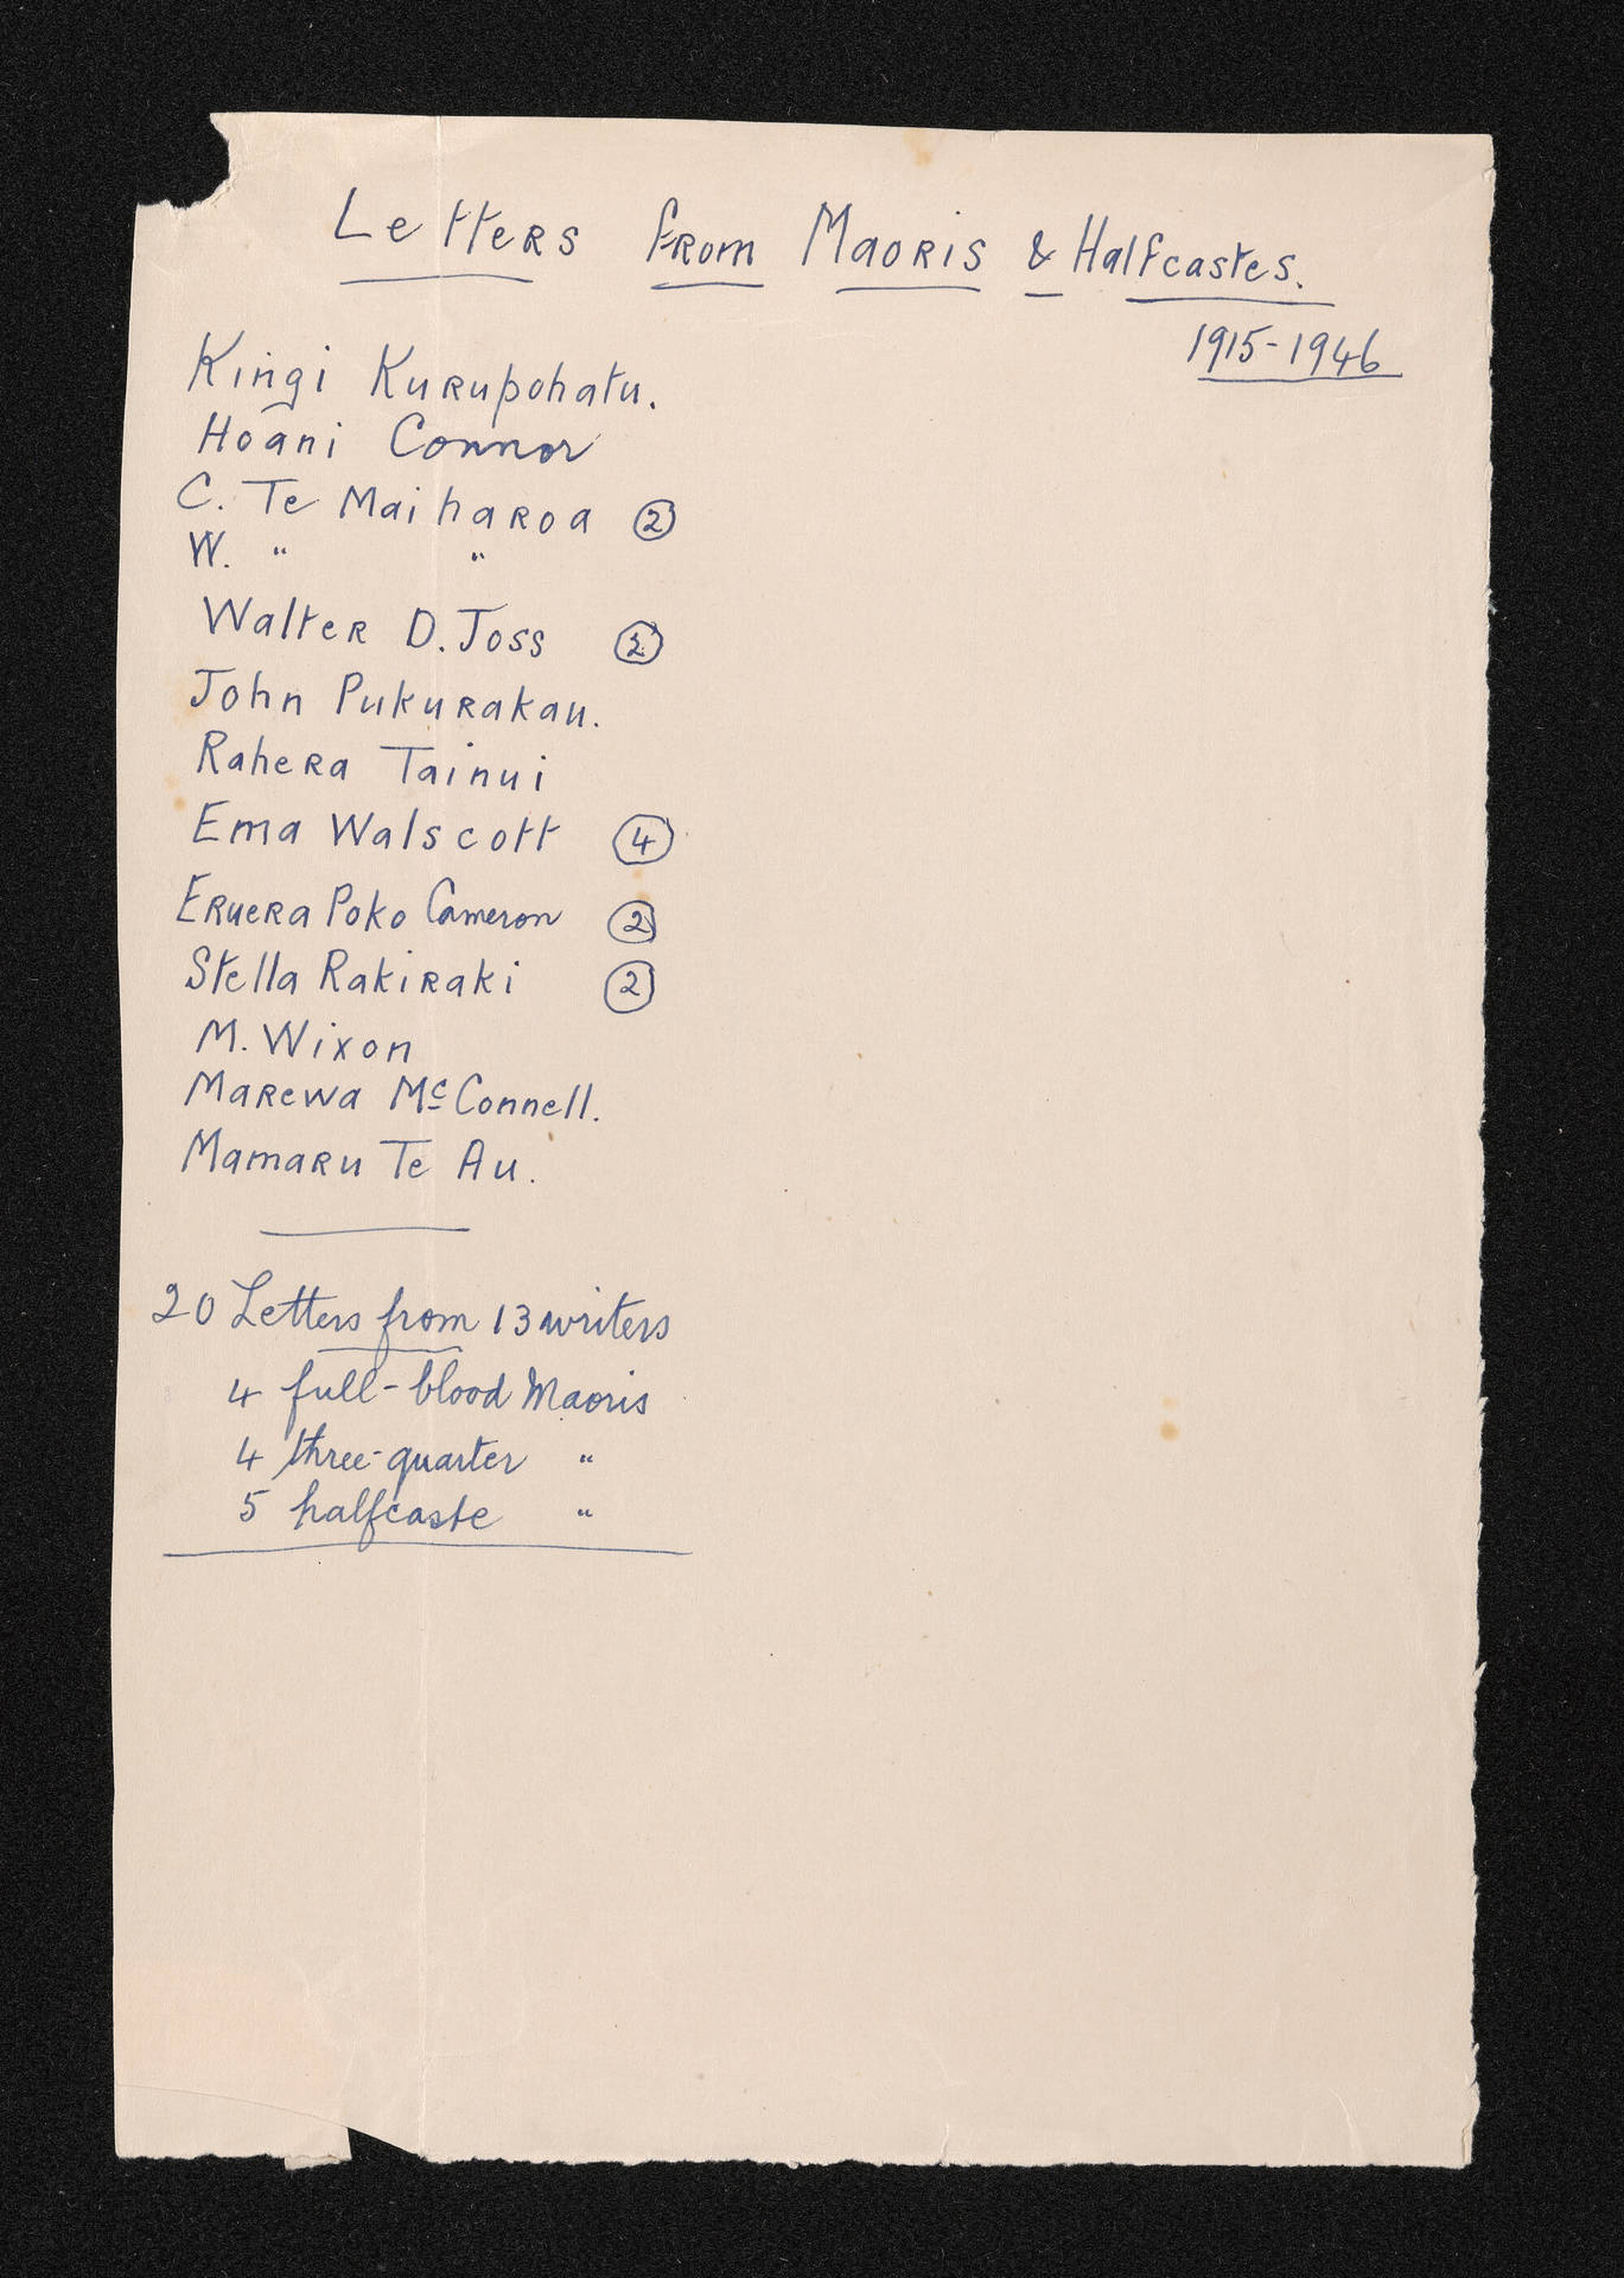 Letters from Maoris & Halfcastes.
1915-1946
Kingi Kurupohatu.
Hoani Connor
C. Te Maiharoa ②
W. " "
Walter D. Joss ②
John Pukurakau.
Rahera Tainui
Ema Walscott ④
Eruera Poko Cameron ②
Stella Rakiraki ②
M. Wixon
Marewa McConnell.
Mamaru Te Au.
20 Letters from 13 writers
4 full-blood Maoris
4 three-quarter "
5 halfcaste "